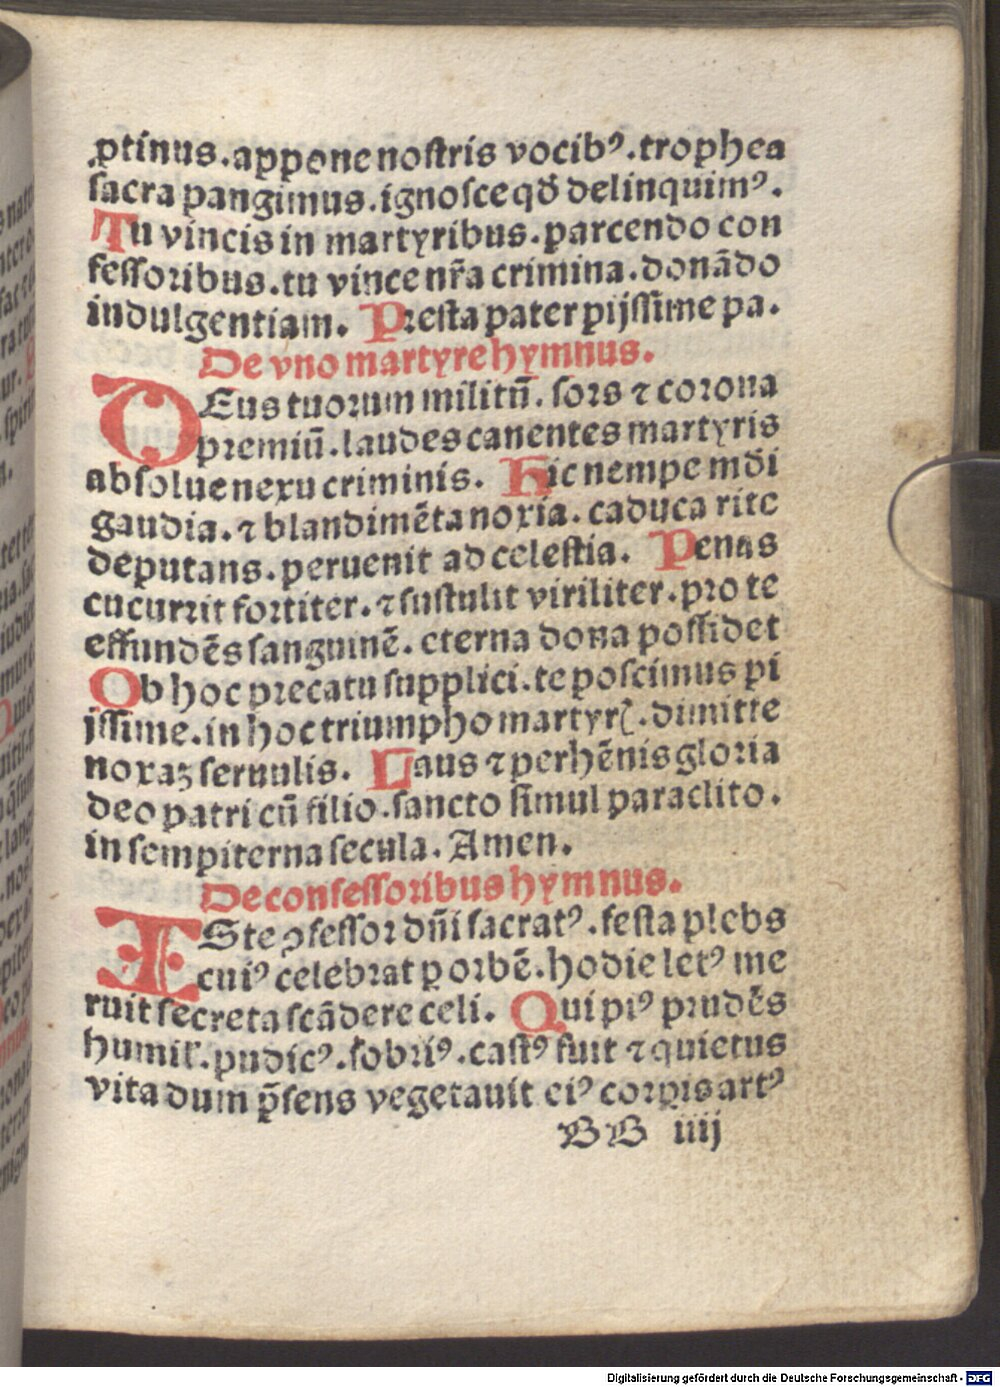 ꝓtinus. appone nostris vocibꝰ. trophea
sacra pangimus. ignosce qđ delinquimꝰ.
Tu vincis in martyribus. parcendo con
fessoribus. tu vince nr̃a crimina. donãdo
indulgentiam. Presta pater pijssime pa.
De vno martyre hymnus.
DEus tuorum militũ. sors ⁊ corona
premiũ. laudes canentes martyris
absolue nexu criminis. Hic nempe mũdi
gaudia. ⁊ blandimẽta noxia. caduca rite
deputans. peruenit ad celestia. Penas
cucurrit fortiter. ⁊ sustulit viriliter. pro te
effundẽs sanguinẽ. eterna dona possidet
Ob hoc precatu supplici. te poscimus pi
jssime. in hoc triumpho martyrꝭ. dimitte
noxaꝫ seruulis. Laus ⁊ perhẽnis gloria
deo patri cũ filio. sancto simul paraclito.
in sempiterna secula. Amen.
De confessoribus hymnus.
ISte ꝯfessor dñi sacratꝰ. festa plebs
cuiꝰ celebrat ꝑ orbẽ. hodie letꝰ me
ruit secreta scãdere celi. Qui piꝰ prudẽs
humil’. pudicꝰ. sobriꝰ. castꝰ fuit ⁊ quietus
vita dum p̃sens vegetauit eiꝰ corpis artꝰ
BB iiij
Digitalisierung gefördert durch die Deutsche Forschungsgemeinschaft - DFG